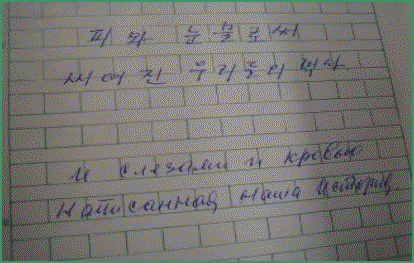 피와 눈물로써
써여진 우리들의 력사
и слезами и кровью
написанная наша история